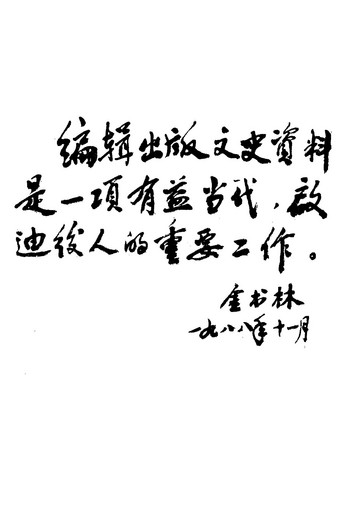 编辑出版文史資料
是一項有益当代，啟
迪後人的重要工作。
金书林
一九八八年十一月